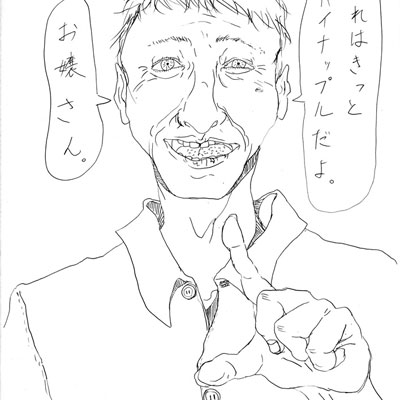 れはきっと
パイナップルだよ。
お嬢さん。